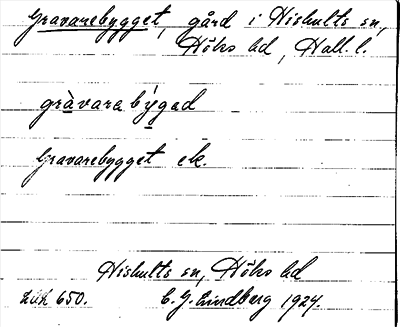 Gravarebygget, gård i Hishults sn,
Höks hd, Hall. l.
gràvarabýgad
Gravarebygget ek.
Hishults sn, Höks hd
650. C. G. Lindberg 1924.